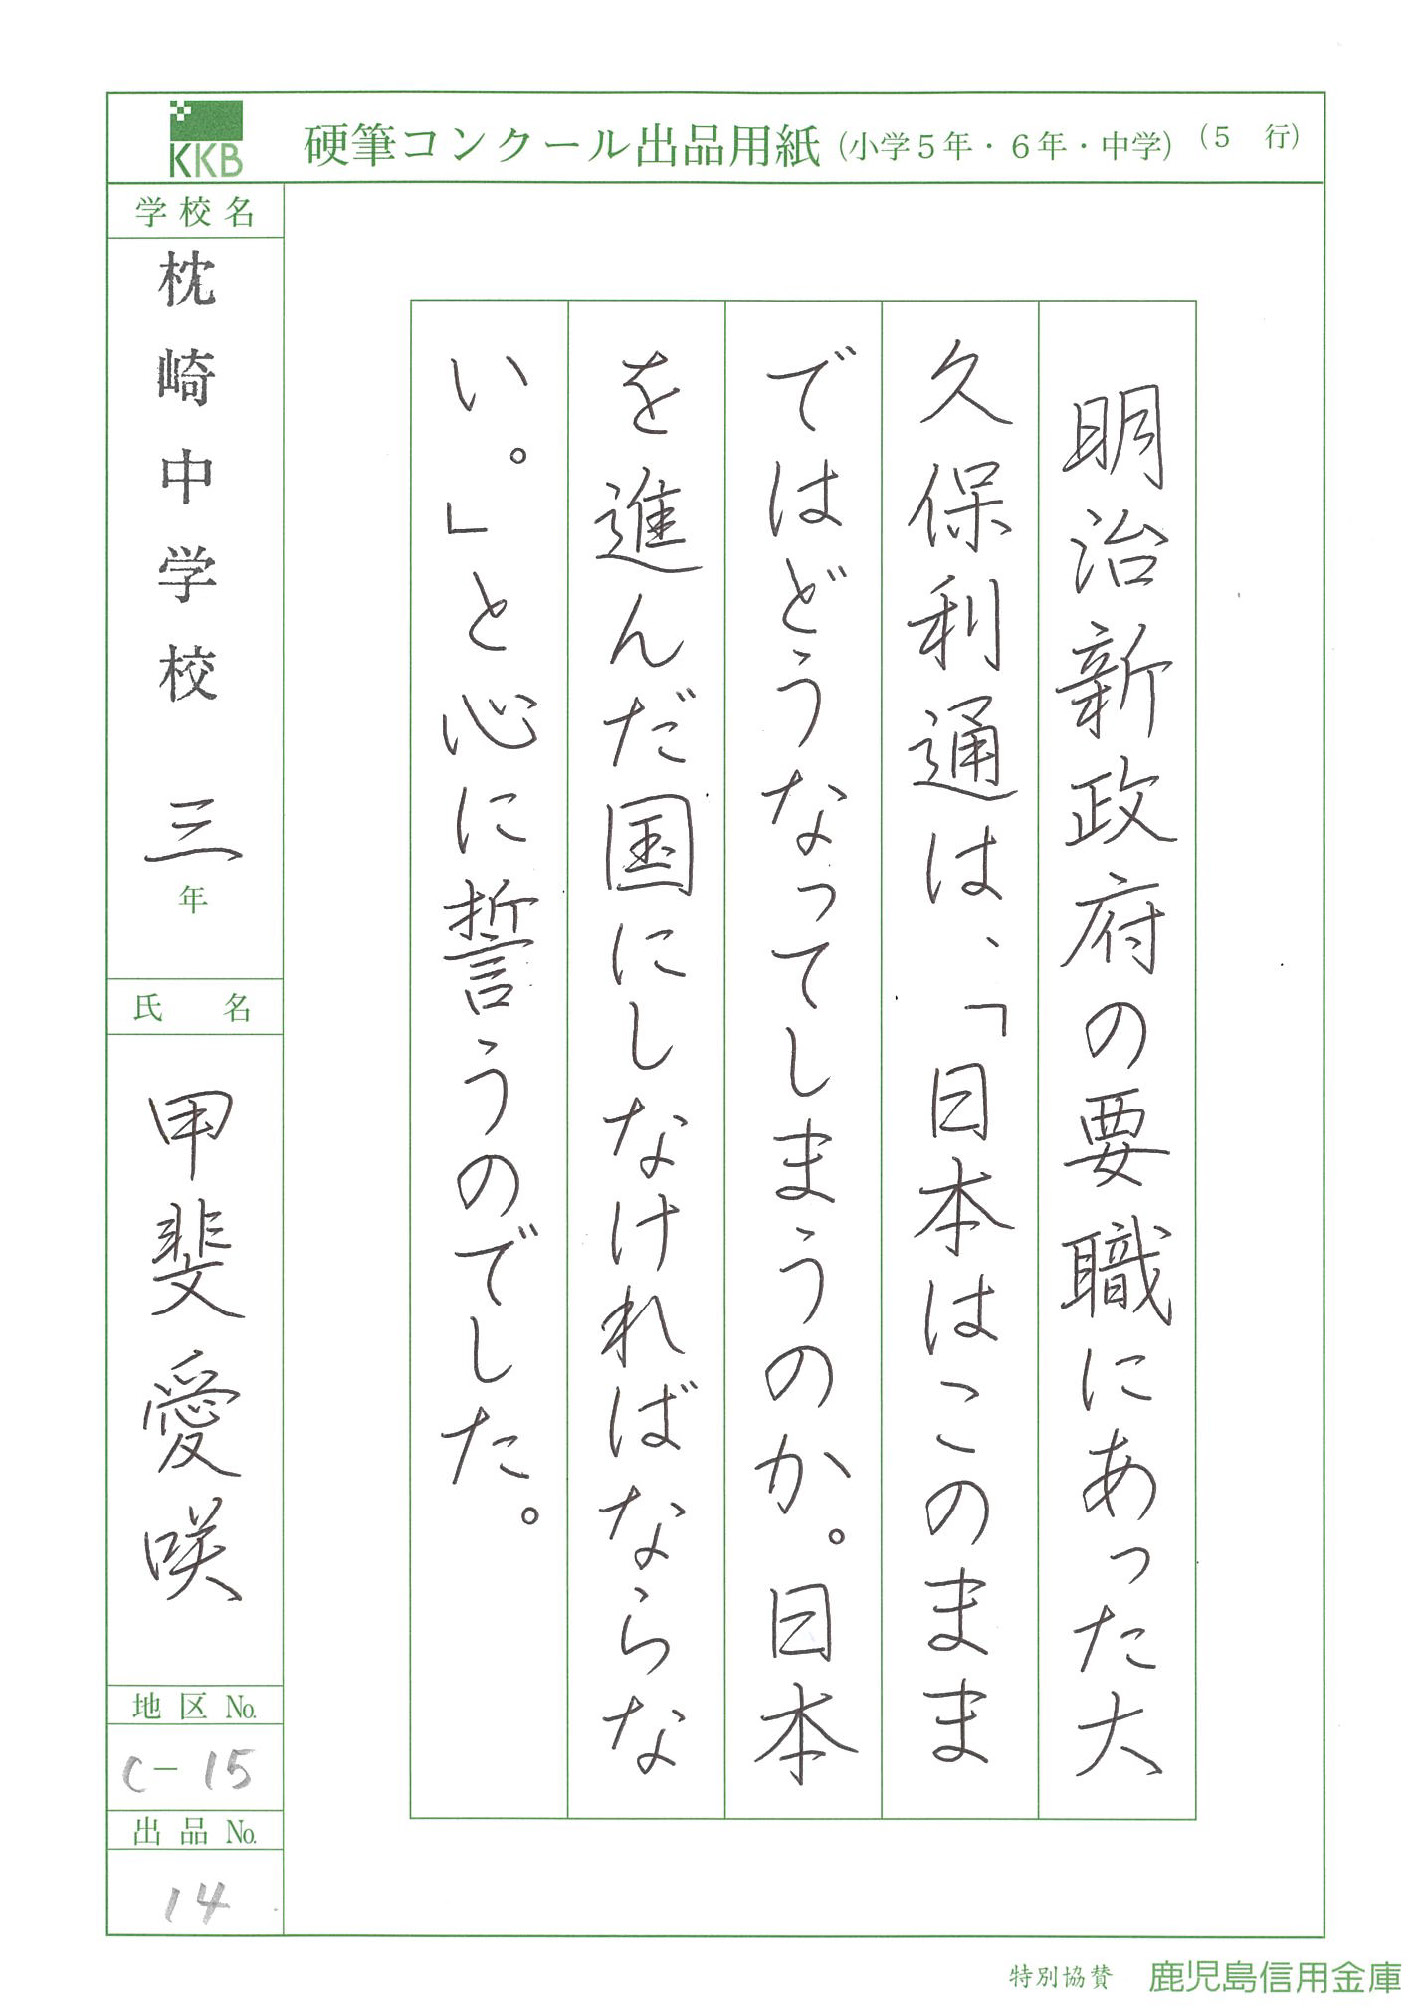 KKB
硬筆コンクール出品用紙(小学5年・6年・中学)(5 行)
明治新政府の要職にあった大
久保利通は、「日本はこのまま
ではどうなってしまうのか。日本
を進んだ国にしなければならな
い。」と心に誓うのでした。
学校名
枕崎中学校 三年
氏 名
甲斐愛咲
地区 No.
C-15
出品 No.
14
特別協賛 鹿児島信用金庫